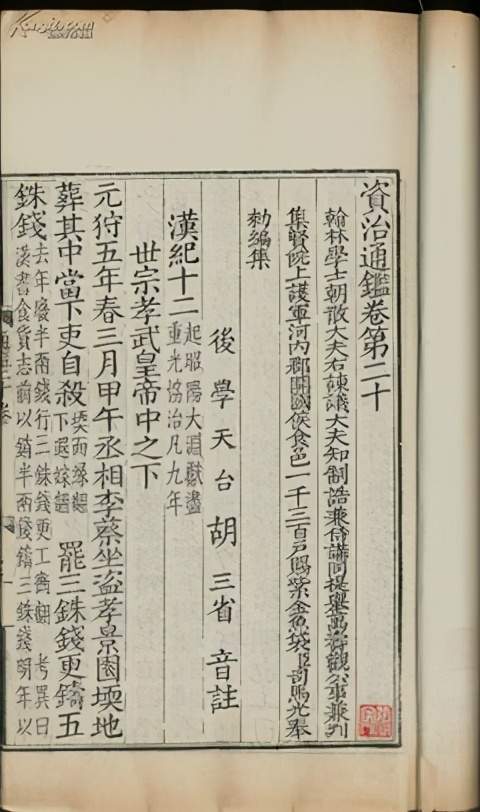 資治通鑑卷第二十
翰林學士朝散大夫右諫議大夫知制誥兼侍講同提舉萬壽觀公事兼判
集賢院上護軍河內郡開國侯食邑一千三百戶賜紫金魚袋臣司馬光奉
勑編集
後學天台胡三省音註
漢紀十二起昭陽大淵獻盡
重光協洽凡九年
世宗孝武皇帝中之下
元狩五年春三月甲午丞相李蔡坐盜孝景園堧地
葬其中當下吏自殺堧而緣翻
下遐嫁翻罷三銖錢更鑄五
銖錢去年廢半兩錢行三銖錢更工衡翻考異曰
漢書食貨志前以銷半兩錢鑄三銖錢明年以